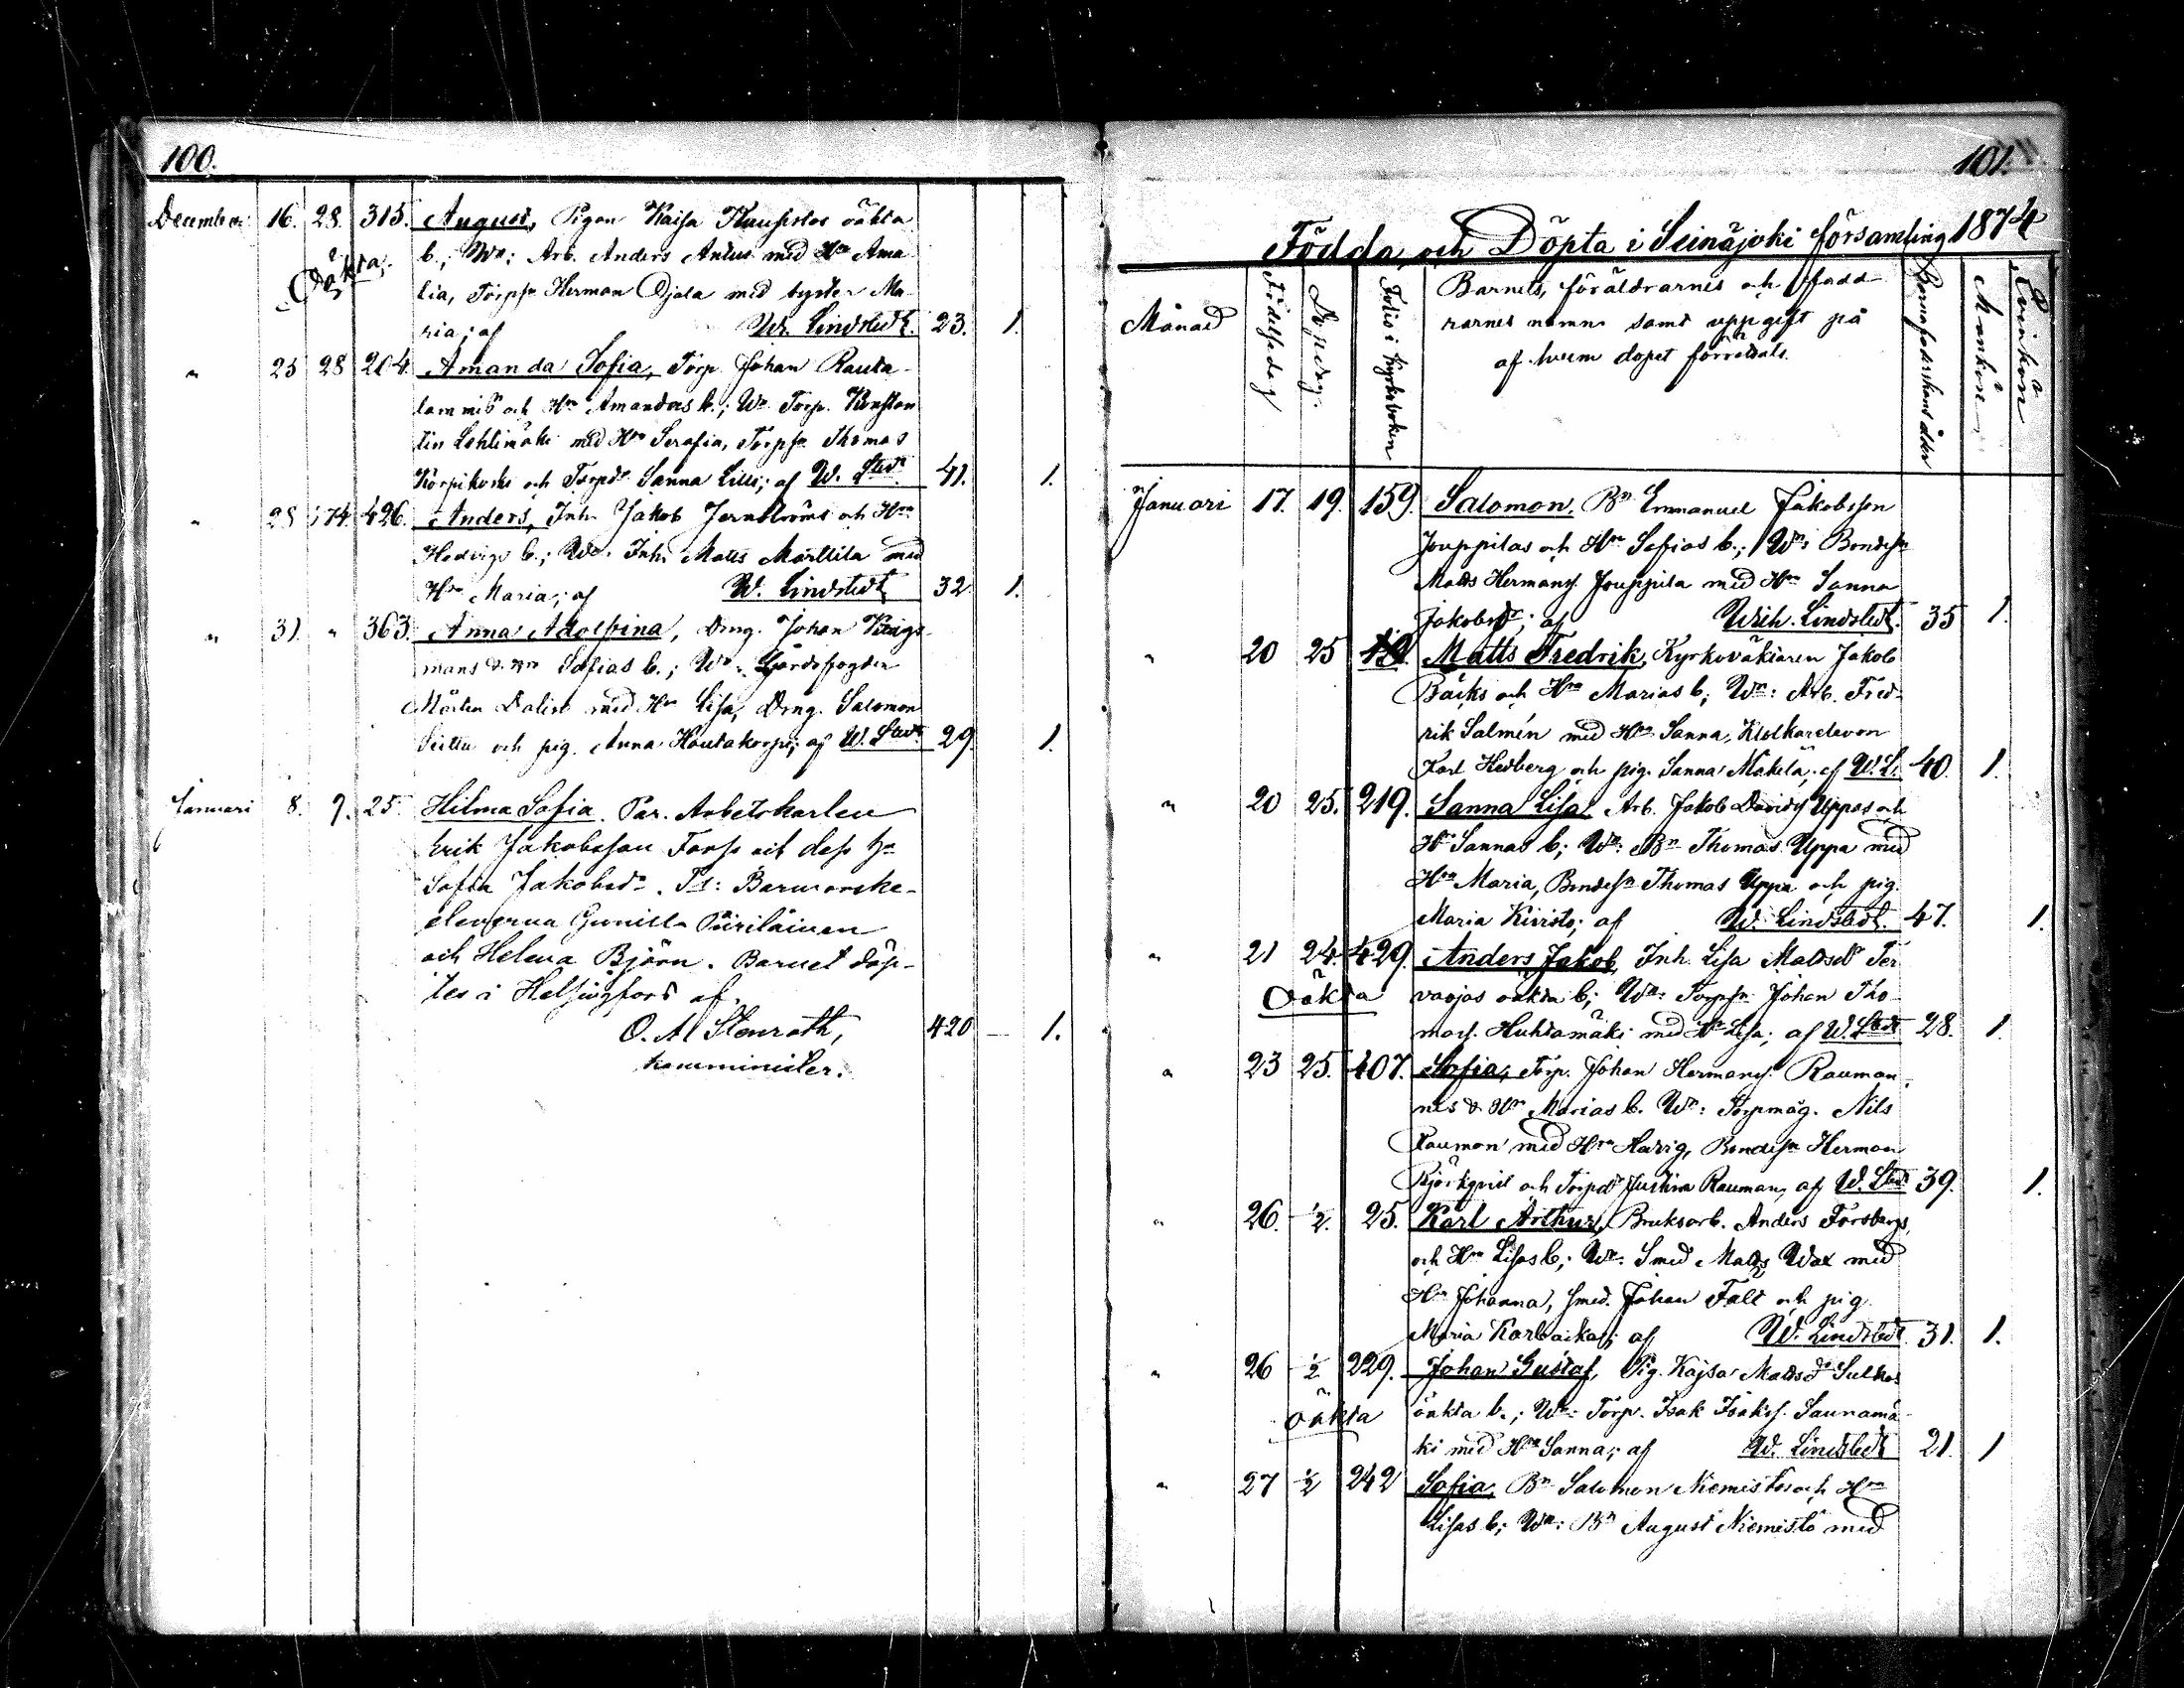 100.
December 16. 28. 315. August, Pigan Kaisa öäkta
Oäkta.
b.; Wn: Arb. Anders Antus med Hu Ama
lia, Torpsn Herman Ojala med syster Ma
ria; af W. Lindstedt. 23. 1.
" 25 28 204. Amanda Sofia, Torp. Johan Rauta-
lammis och Hu Amandas b.; Wn Torp. Konstan
tin Lehtimäki med Hu Serafia, Torpsn Thomas
Körpikoski och Torpdr Sanna Lilli; af W. Lstedt. 41. 1.
" 28 1/74. 426. Anders, Inh. Jakob Jernströms och Hu
Hedvigs b.; Wn: Inh. Matts Marttila med
Hu Maria; af W. Lindstedt 32. 1.
" 31. " 363. Anna Adolfina, Dräng. Johan Krigs-
mans & Hu Sofias b.; Wn: Gårdsfogden
Mårten Dalin med Hu Lisa, Dräng. Salomon
och pig. Anna Hautakorpi; af W. Lstedt. 29. 1.
Januari 8. 9. 25. Hilma Sofia. Par. Arbetskarlen
Erik Jakobsson Fors och dess hu
Sofia Jakobsdr. Ts: Barmorske-
eleverna Gunilla Piiriläinen
och Helena Björn. Barnet döp-
tes i Helsingfors af
O. A. Stenroth, 420 — 1.
komminister.
101.
Födda och Döpta i Seinäjoki församling 1874
Månad Födelsedag Dopedag. Folio i Kyrkoboken Barnets, föräldrarnes och fadd- Barnaföderskans ålder Mankön Qvinkön
rarnes namn samt uppgift på
af hvem dopet förrättats.
Januari 17. 19. 159. Salomon, Bn Emmanuel Jakobsson
Jouppilas och Hu Sofias b.; Wn: Bondesn
Matts Hermanss. Jouppila med Hu Sanna
Jakobsdr; af Wilh. Lindstedt. 35 1.
" 20 25 Matts Fredrik, Kyrkoväktaren Jakob
Bäcks och Hu Marias b; Wn: Arb. Fred-
rik Salmén med Hu Sanna, Klockareleven
Karl Hedberg och pig. Sanna Mäkelä; af W. L. 40. 1.
" 20 25. 219. Sanna Lisa, Arb. Jakob Davidss Uppas och
Hu Sannas b; Wn: Bn Thomas Uppa med
Hu Maria, Bondesn Thomas Uppa och pig.
Maria Kivisto; af W. Lindstedt. 47. 1.
" 21 24. 429. Anders Jakob, Inh. Lisa Mattsdr Ter
Oäkta vaojas oäkta b; Wn: Torpsn Johan Tho-
mass. Huhtamäki med Hu Lisa; af W. Lstedt 28. 1.
" 23 25. 407. Sofia, Torp. Johan Hermanss. Rauman
nes & Hu Marias b. Wn: Torpmåg. Nils
Rauman med Hu Hedvig, Bondesn Herman
Björkqvist och Torpdr Justina Rauman, af W. Lstedt 39. 1.
" 26. 1/2. 25. Karl Arthur, Bruksarb. Anders Forsbergs
och Hu Lisas b; Wn: Smed. Matts Wax med
Hu Johanna, smed. Johan Fält och pig.
Maria; af W. Lindstedt. 31. 1.
" 26 1/2 229. Johan Gustaf, Pig. Kajsa Mattsdr Sulkas
öäkta öäkta b.; Wn: Torp. Isak Isakss. Saunamä
ki med Hu Sanna; af W. Lindstedt 21. 1
" 27 1/2 242 Sofia, Bn Salomon Niemistös och Hu
Lisas b; Wn: Bn August Niemistö med